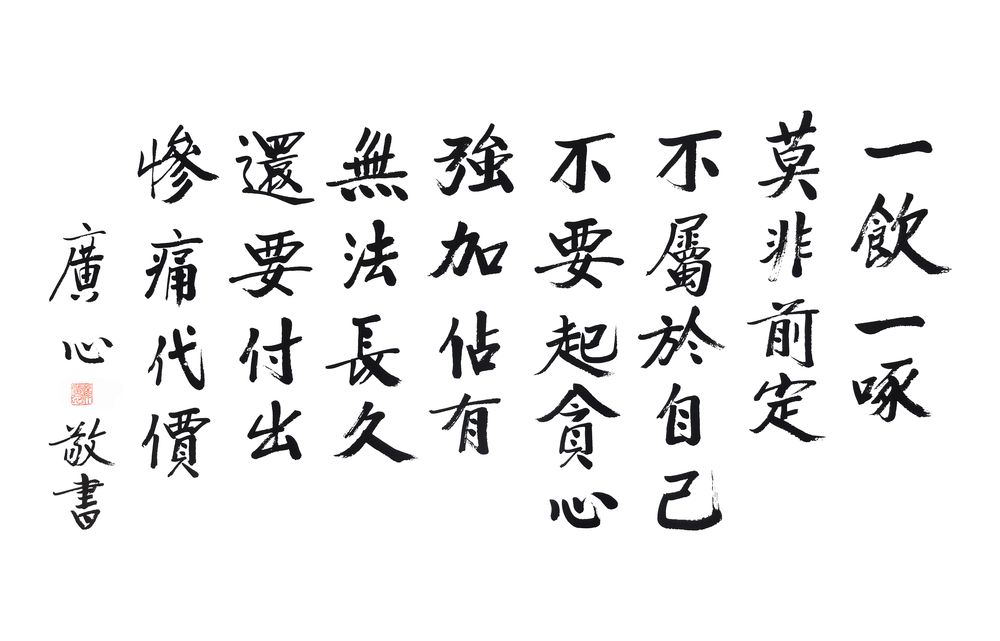 一飲一啄
莫非前定
不屬於自己
不要起貪心
強加佔有
無法長久
還要付出
慘痛代價
廣心敬書